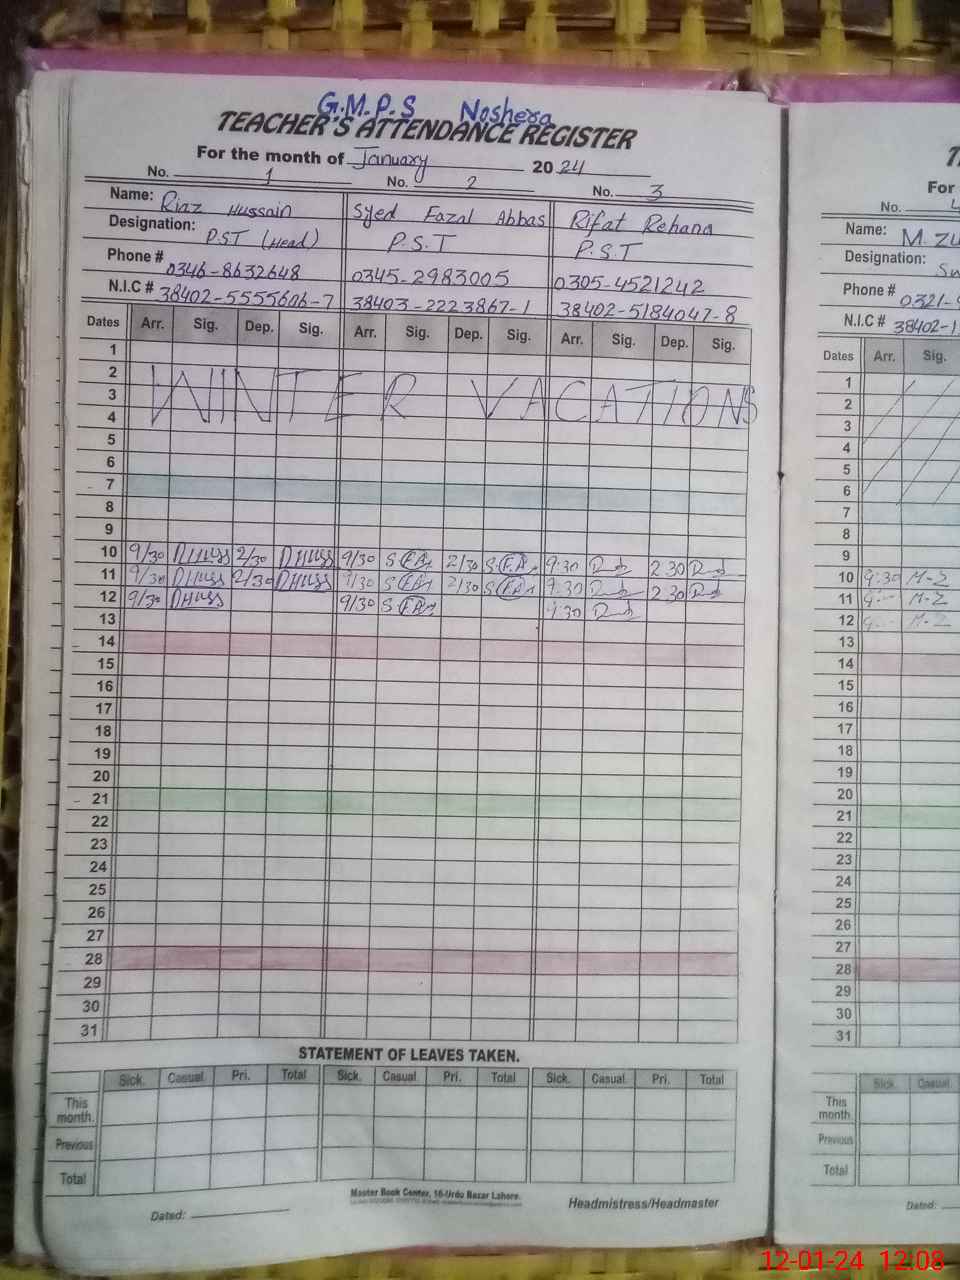 G.M.P.S Noshera
TEACHER'S ATTENDANCE REGISTER
For the month of January 2024
No. 1 No. 2 No. 3
Name: Riaz Hussain Syed Fazal Abbas Rifat Rehana
Designation: P.S.T (Head) P.S.T P.S.T
Phone # 0346-8632648 0345-2983005 0305-4521242
N.I.C # 38402-5555606-7 38403-2223867-1 38402-5184047-8
Dates Arr. Sig. Dep. Sig. Arr. Sig. Dep. Sig. Arr. Sig. Dep. Sig.
1
2
3 WINTER VACATIONS
4
5
6
7
8
9
10 9/30 2/30 9/30 S.F.A 2/30 S.F.A 9:30 2 30
11 9/30 2/30 9/30 S.F.A 2/30 S.F.A 9:30 2 30
12 9/30 9/30 S.F.A 9:30
13
14
15
16
17
18
19
20
21
22
23
24
25
26
27
28
29
30
31
STATEMENT OF LEAVES TAKEN.
Sick. Casual Pri. Total Sick. Casual Pri. Total Sick. Casual Pri. Total
This month.
Previous
Total
Master Book Center, 16-Urdu Bazar Lahore.
Dated: Headmistress/Headmaster
For
No.
Name: M. Zu
Designation:
Phone # 0321-
N.I.C # 38402-1
Dates Arr. Sig.
1
2
3
4
5
6
7
8
9
10 9:30 M-Z
11 M-Z
12 M-Z
13
14
15
16
17
18
19
20
21
22
23
24
25
26
27
28
29
30
31
Sick. Casual
This month
Previous
Total
Dated:
12-01-24 12:08